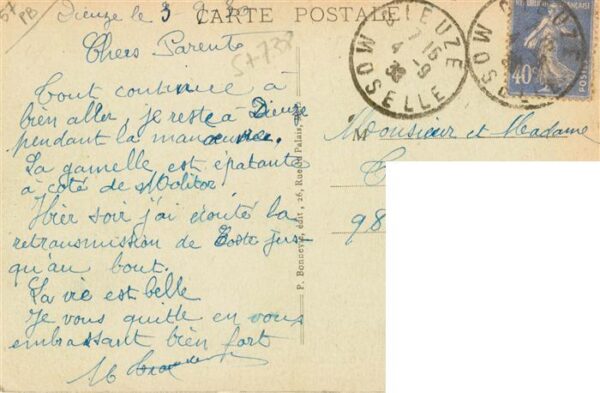 57
PB
Dieuze le 3 9 30
CARTE POSTALE
57738
Chers Parents
Tout continue à
bien aller, je reste à Dieuze
pendant la manoeuvre.
La gamelle est épatante
à coté de Molitor.
Hier soir j'ai écouté la
retransmission de Coste jus-
qu'au bout.
La vie est belle
Je vous quitte en vous
embrassant bien fort
P. Bonnevie, édit, 26, Rue Palais,
DIEUZE
MOSELLE
7 15
4 - 9
30
DIEUZE
MOSELLE
REPUBLIQUE FRANÇAISE
40c
POSTES
M
Monsieur et Madame
98